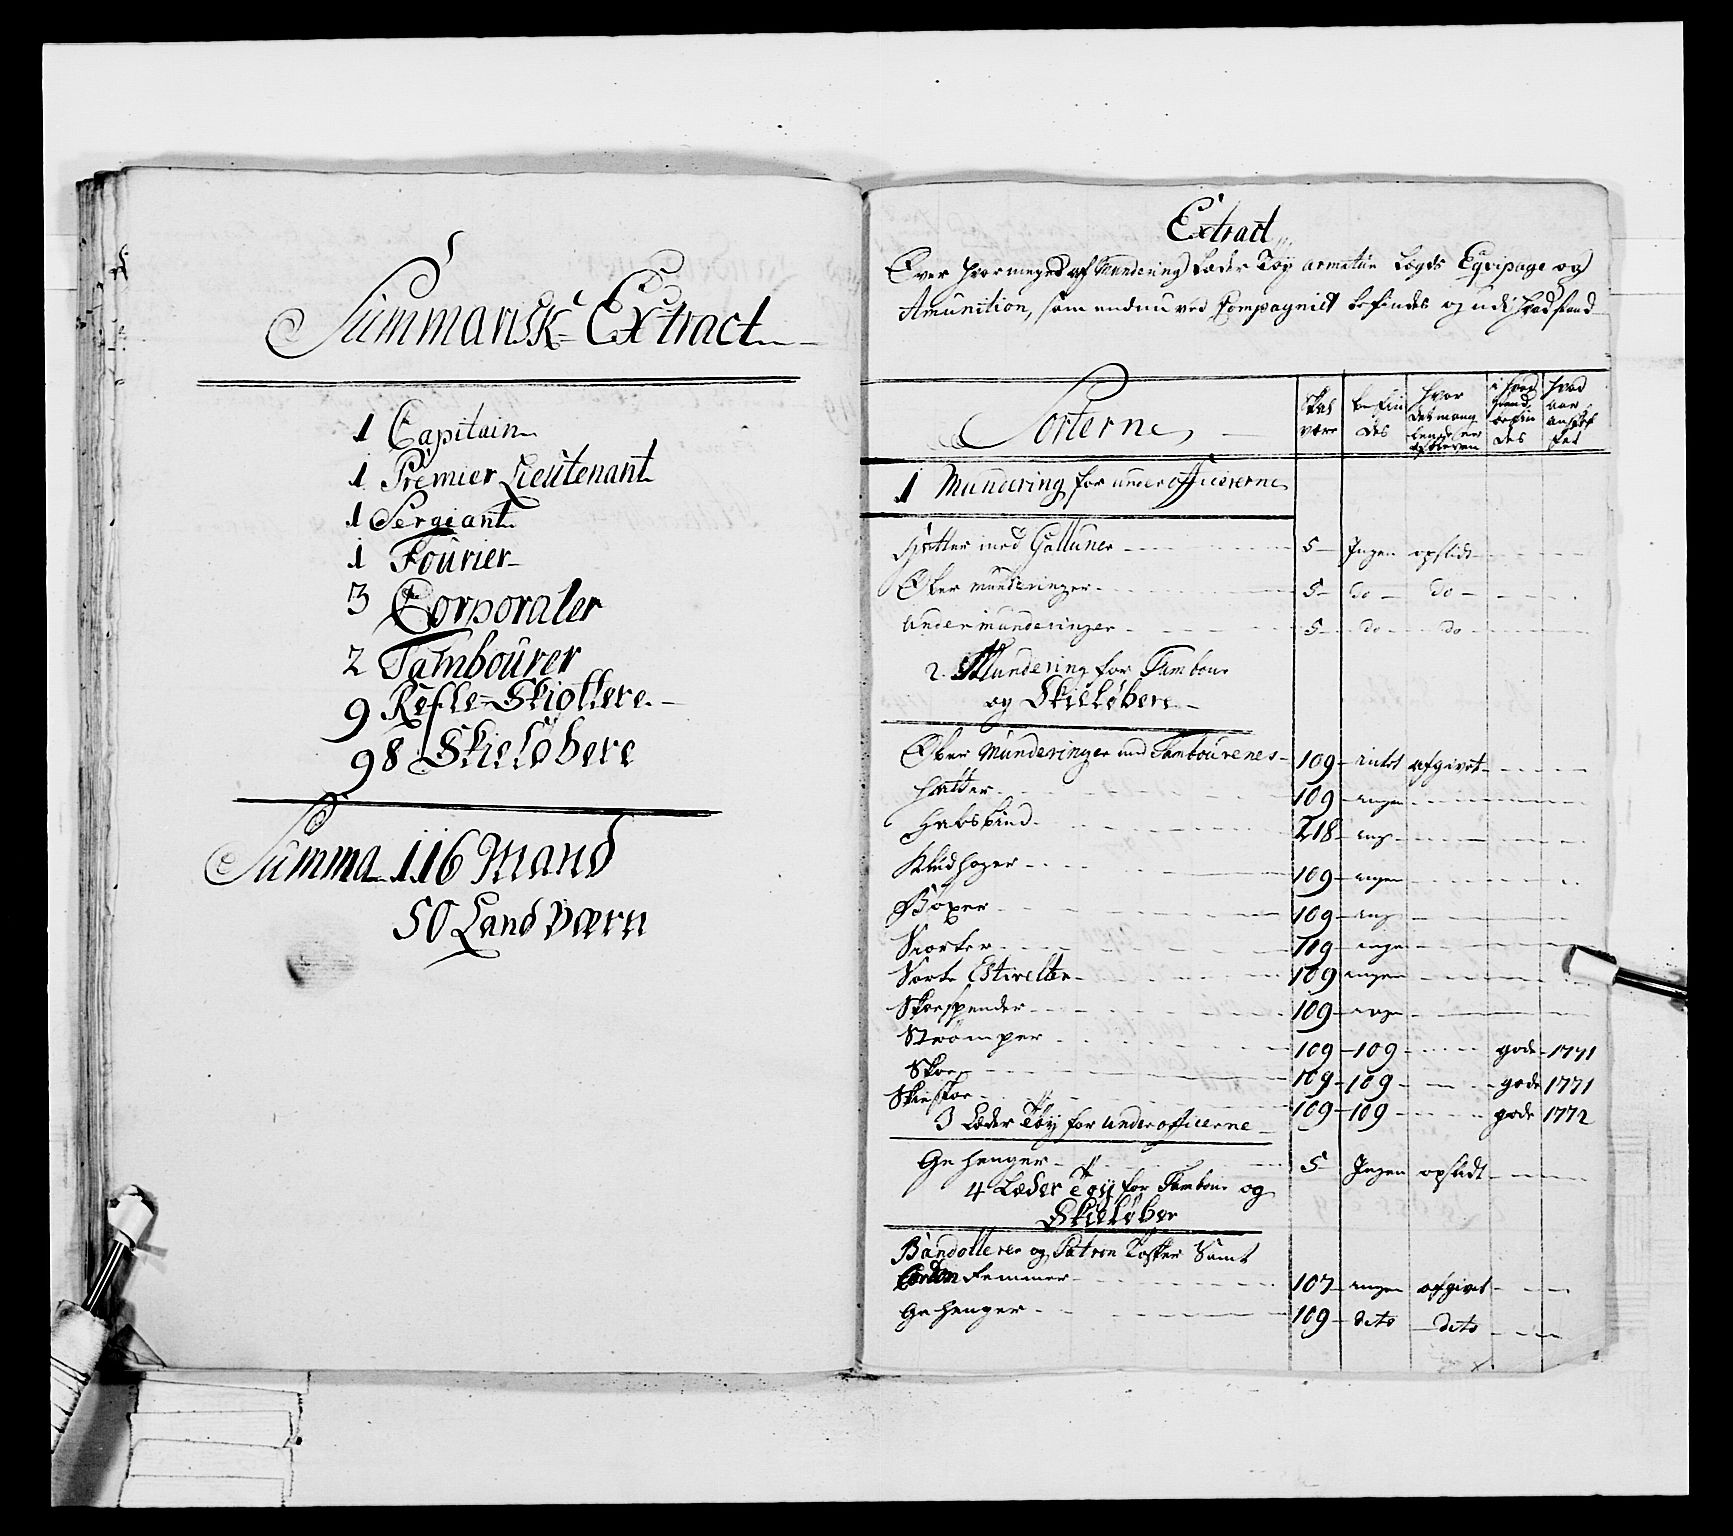 Summarisk Extract
1 Capitain
1 Premier Lieutenant
1 Sergiant
1 Fourier
3 Corporaler
2 Tambourer
9 Refle-Skiøttere
98 Skieløbere
Summa 116 Mand
50 Land Værn
Extract
Over hvor meget af Mundering Læder Tøy armatur Sogds Eqvipage og
Amunition, som endnu ved Compagniet befindes og udi hvad stand
Sorterne
skal være
befindes
hvor det manglende er afbleven
i hvad stand befindes
hvad aar anskaffet
1 Mundering for underofficererne
Hatter med Galluner 5 Ingen opslidt
Ober munderinger 5 do do
Under munderinger 5 do do
2. Mundering for Tambour
og Skieløbere
Ober Munderinger med Tambourenes 109 intet afgivet
Hatter 109 ingen
Halsbind 218 ing
Kludhoser 109 ingen
Böxer 109 ing
Skiorter 109 ingen
Sorte Estivelter 109 ingen
Skoespender 109 ingen
Strømper 109 109 gode 1771
Skoe 109 109 gode 1771
109 109 gode 1772
3 Læder Tøy for underofficerne
Gehenger 5 Ingen opslidt
4 Læder Tøy for Tambour og
Skieløber
Bandollerer og Patron Tasker Samt
Remmer 107 ingen afgivet
Gehenger 109 dito dito